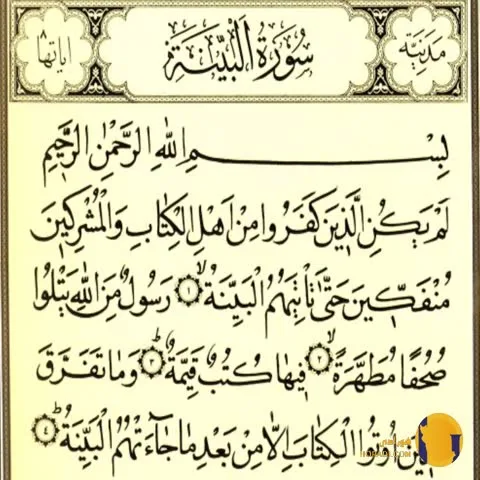 مَدَنِيَّة سُورَةُ الْبَيِّنَةِ اٰيَاتُهَا ٨
بِسْمِ اللّٰهِ الرَّحْمٰنِ الرَّحِيمِ
لَمْ يَكُنِ الَّذِينَ كَفَرُوا مِنْ اَهْلِ الْكِتَابِ وَالْمُشْرِكِينَ
مُنْفَكِّينَ حَتّٰى تَاْتِيَهُمُ الْبَيِّنَةُ ۙ ١ رَسُولٌ مِنَ اللّٰهِ يَتْلُوا
صُحُفًا مُطَهَّرَةً ۙ ٢ فِيهَا كُتُبٌ قَيِّمَةٌ ۜ ٣ وَمَا تَفَرَّقَ
اُوتُوا الْكِتَابَ اِلَّا مِنْ بَعْدِ مَا جَٓاءَتْهُمُ الْبَيِّنَةُ ۜ ٤